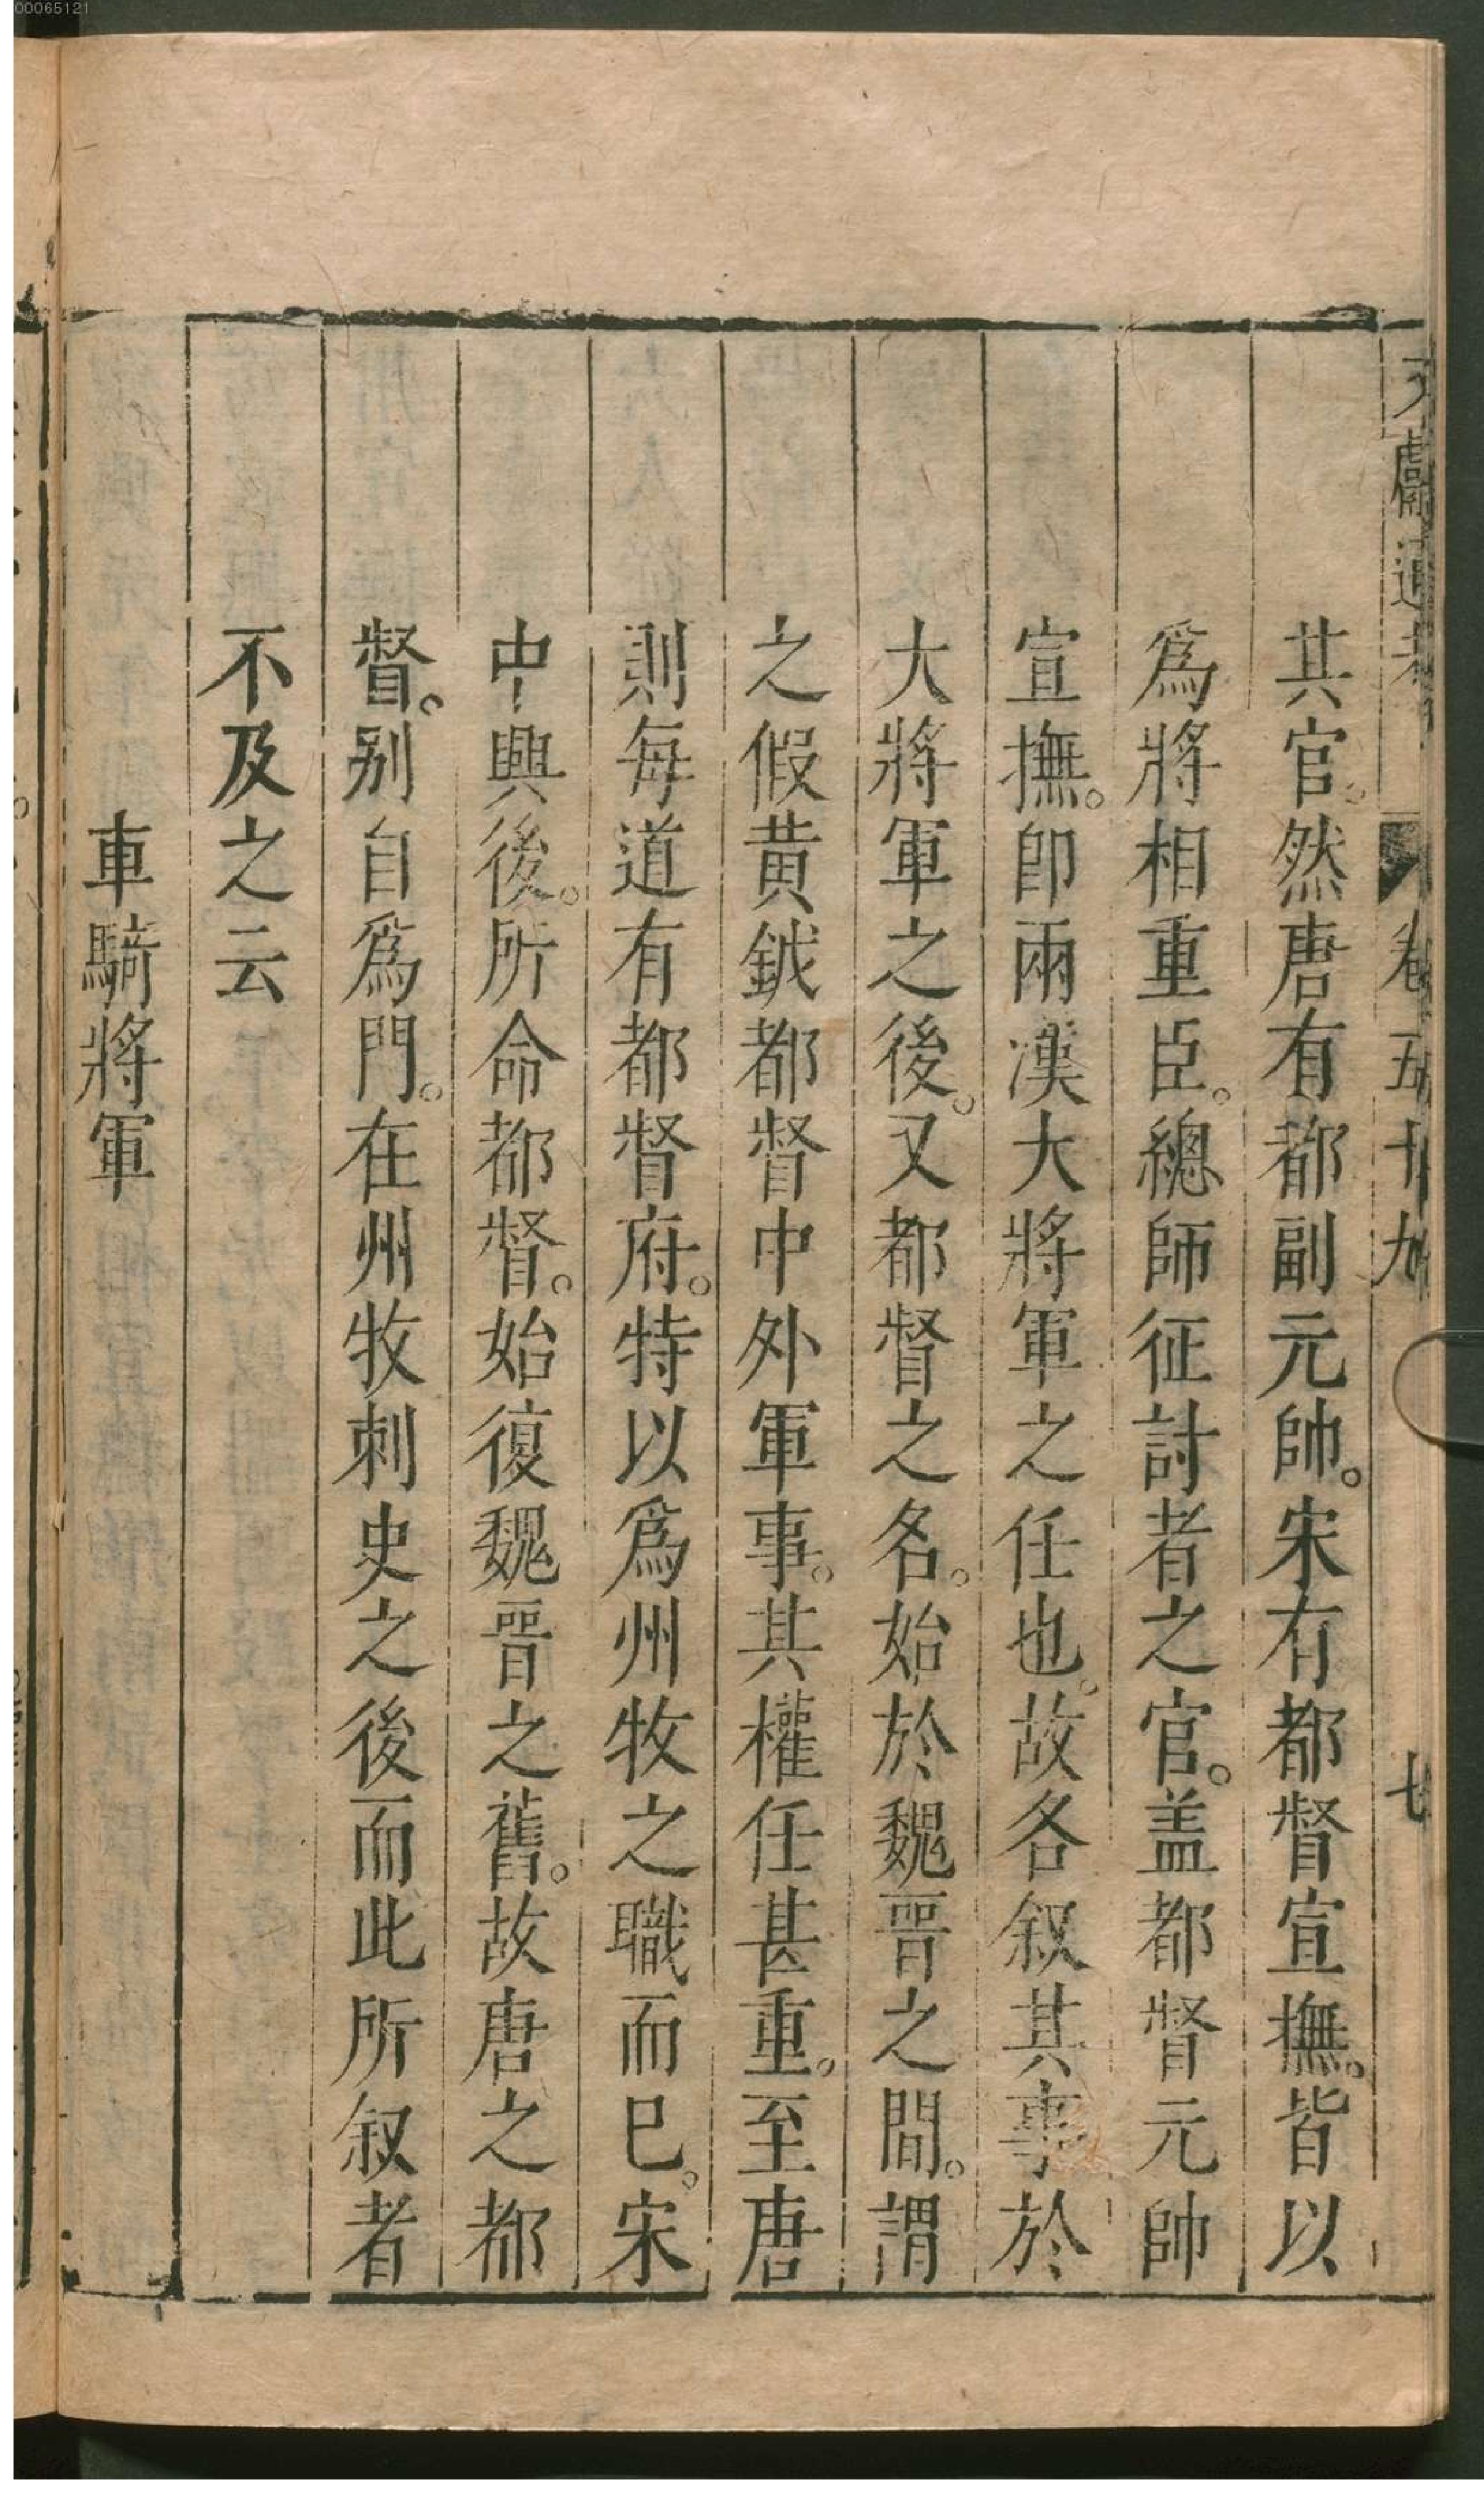 00065121
文獻通考 卷五十九 七
其官。然唐有都副元帥。宋有都督宣撫。皆以
爲將相重臣。總師征討者之官。盖都督元帥
宣撫。卽兩漢大將軍之任也。故各叙其事於
大將軍之後。又都督之名。始於魏晉之間。謂
之假黄鉞都督中外軍事。其權任甚重。至唐
則每道有都督府。特以爲州牧之職而已。宋
中興後。所命都督。始復魏晉之舊。故唐之都
督。别自爲門。在州牧刺史之後而此所叙者
不及之云
車騎將軍